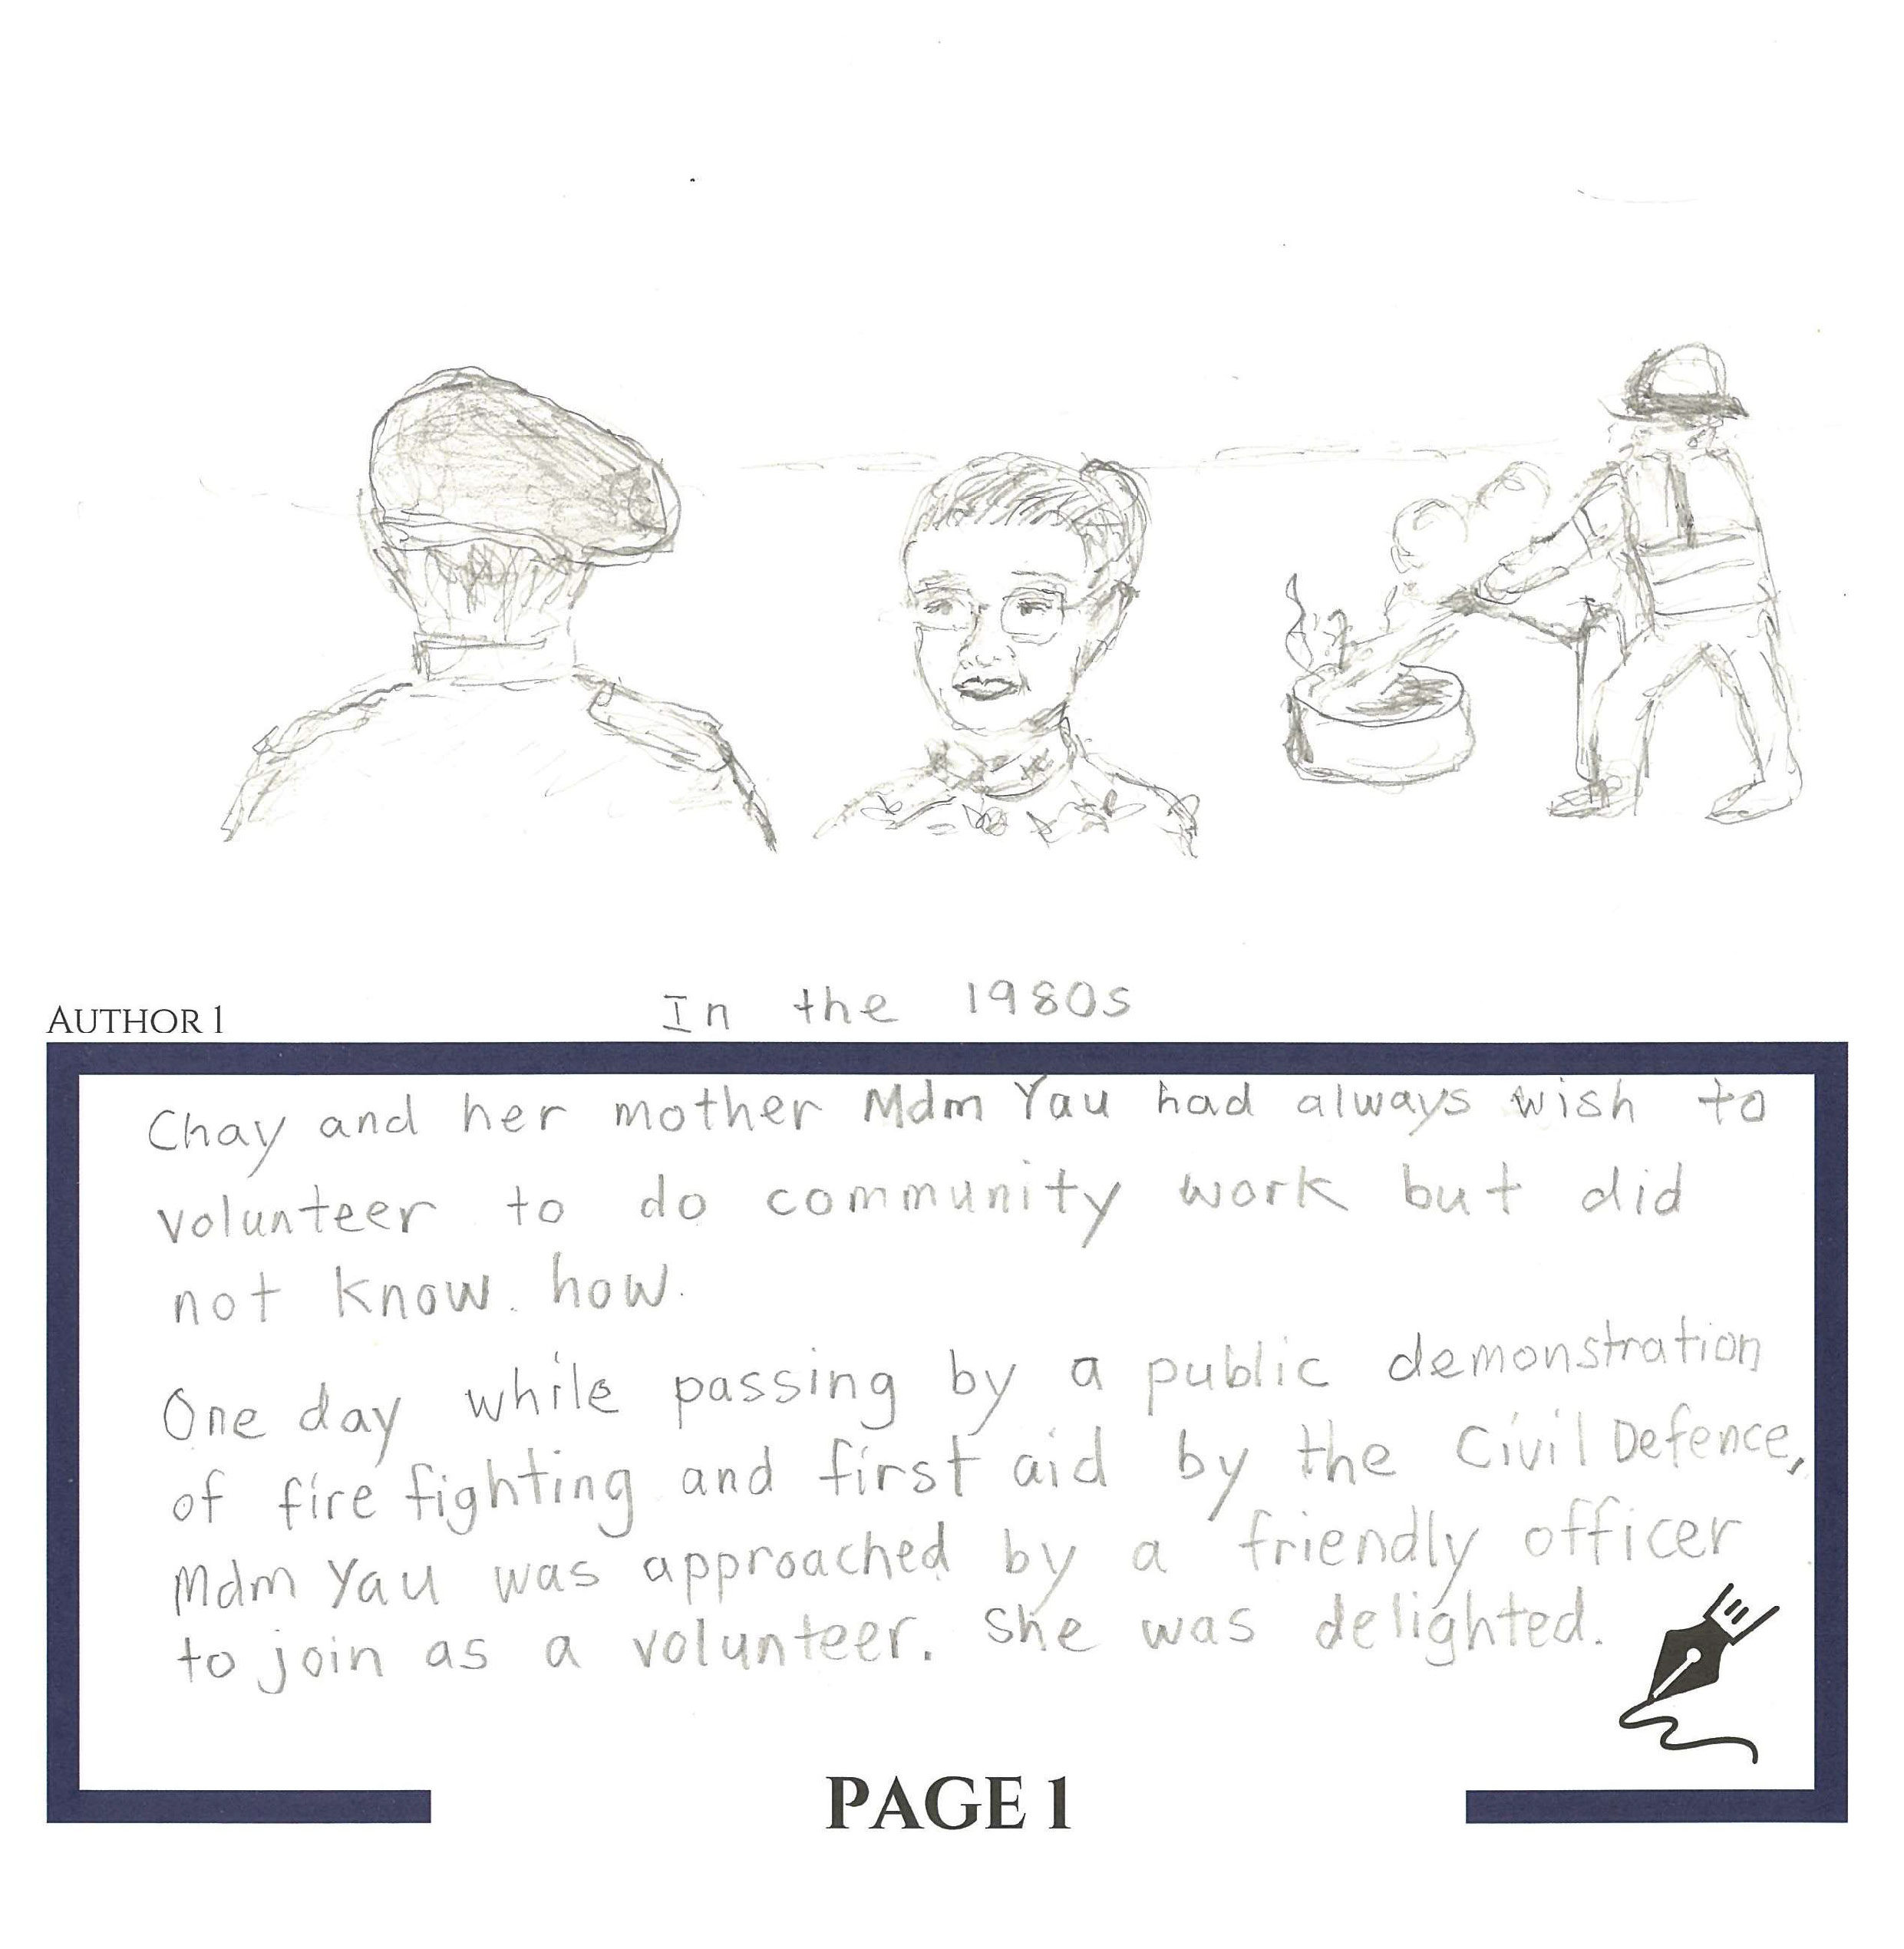 In the 1980s
AUTHOR 1
Chay and her mother Mdm Yau had always wish to
volunteer to do community work but did
not know. how.
One day while passing by a public demonstration
of fire fighting and first aid by the Civil Defence,
Mdm Yau was approached by a friendly officer
to join as a volunteer. She was delighted.
PAGE 1